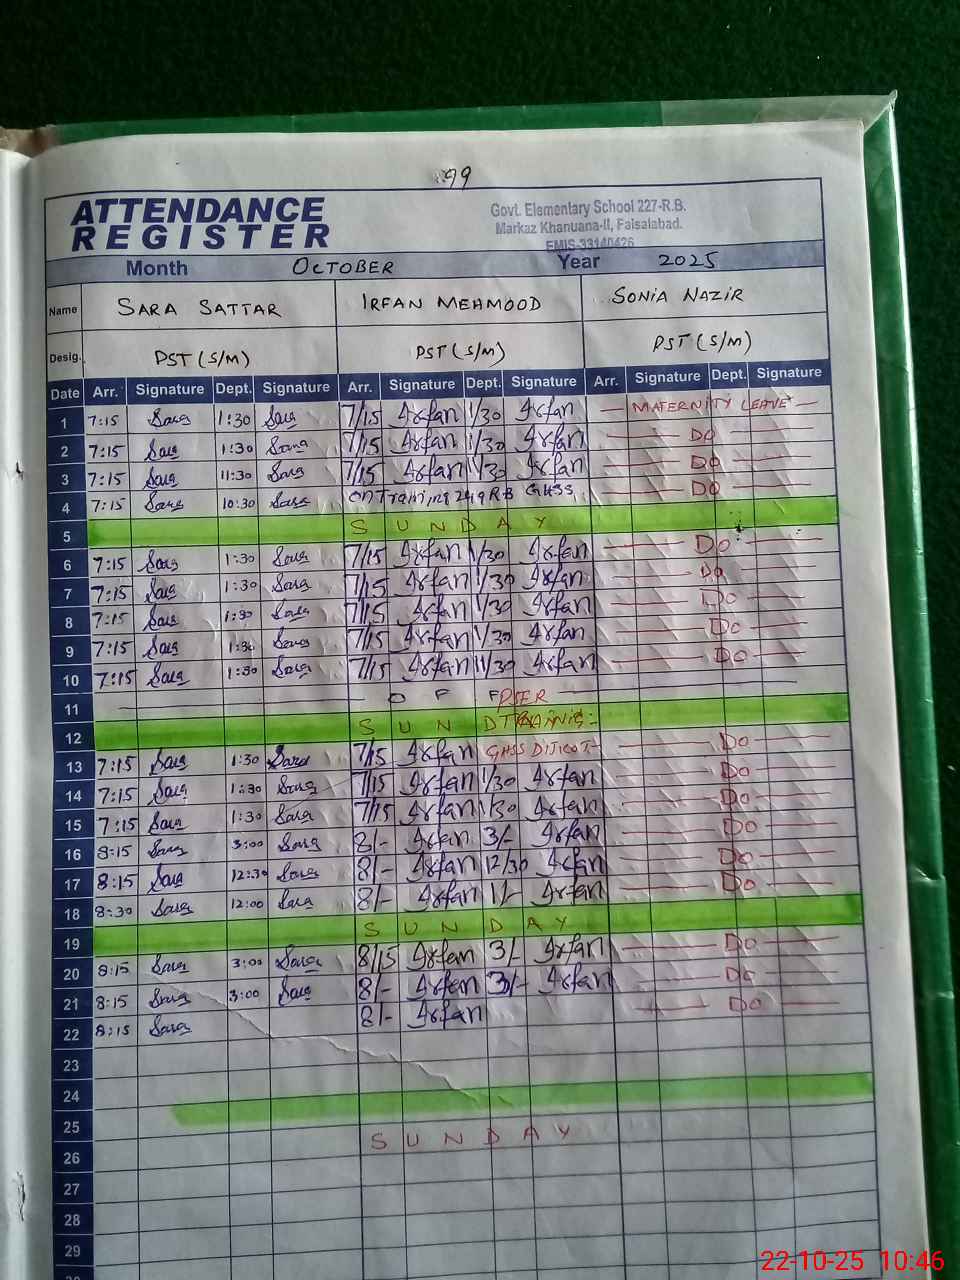 99
ATTENDANCE
REGISTER
Govt. Elementary School 227-R.B.
Markaz Khanuana-II, Faisalabad.
EMIS-33140426
Month OCTOBER Year 2025
Name SARA SATTAR IRFAN MEHMOOD SONIA NAZIR
Desig. PST (S/M) PST (S/M) PST (S/M)
Date Arr. Signature Dept. Signature Arr. Signature Dept. Signature Arr. Signature Dept. Signature
1 7:15 Sara 1:30 Sara 7/15 Irfan 1/30 Irfan MATERNITY LEAVE
2 7:15 Sara 1:30 Sara 7/15 Irfan 1/30 Irfan DO
3 7:15 Sara 11:30 Sara 7/15 Irfan 11/30 Irfan DO
4 7:15 Sara 10:30 Sara on Training 249 RB GHSS DO
5 SUNDAY
6 7:15 Sara 1:30 Sara 7/15 Irfan 1/30 Irfan Do
7 7:15 Sara 1:30 Sara 7/15 Irfan 1/30 Irfan Do
8 7:15 Sara 1:30 Sara 7/15 Irfan 1/30 Irfan Do
9 7:15 Sara 1:30 Sara 7/15 Irfan 1/30 Irfan Do
10 7:15 Sara 1:30 Sara 7/15 Irfan 11/30 Irfan Do
11 OFF PSER
12 SUND
13 7:15 Sara 1:30 Sara 7/15 Irfan GHSS Do
14 7:15 Sara 1:30 Sara 7/15 Irfan 1/30 Irfan Do
15 7:15 Sara 1:30 Sara 7/15 Irfan 1/30 Irfan Do
16 8:15 Sara 3:00 Sara 8/- Irfan 3/- Irfan Do
17 8:15 Sara 12:30 Sara 8/- Irfan 12/30 Irfan Do
18 8:30 Sara 12:00 Sara 8/- Irfan 1/- Irfan Do
19 SUNDAY
20 8:15 Sara 3:00 Sara 8/15 Irfan 3/- Irfan Do
21 8:15 Sara 3:00 Sara 8/- Irfan 3/- Irfan Do
22 8:15 Sara 8/- Irfan Do
23
24
25
26 SUNDAY
27
28
29
22-10-25 10:46